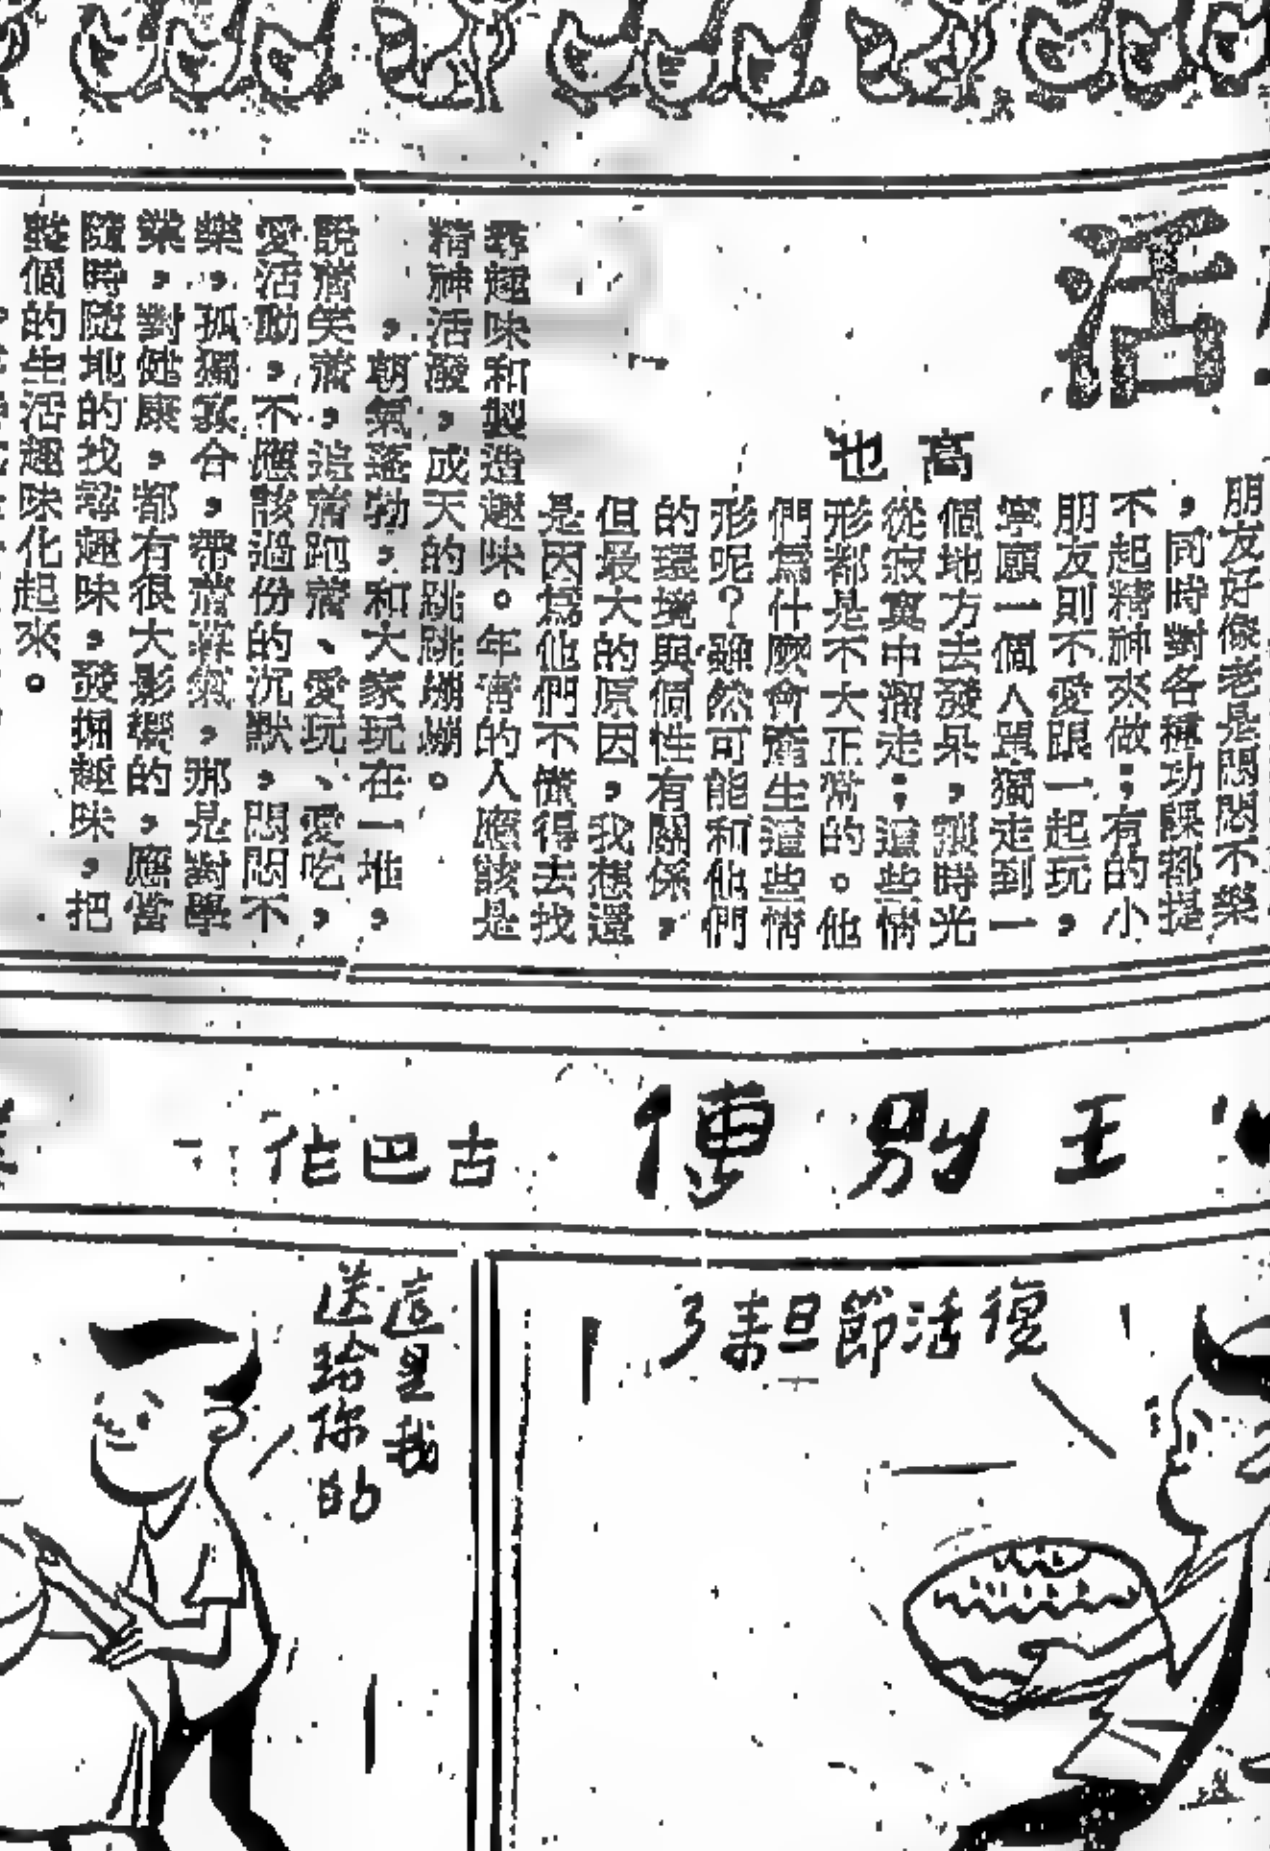 活
高也
朋友好像老是悶悶不樂
，同時對各種功課都提
不起精神來做；有的小
朋友則不愛跟一起玩，
寧願一個人單獨走到一
個地方去發呆，讓時光
從寂寞中溜走；這些情
形都是不大正常的。他
們爲什麽會產生這些情
形呢？雖然可能和他們
的環境與個性有關係，
但最大的原因，我想還
是因爲他們不懂得去找
尋趣味和製造趣味。年青的人應該是
精神活潑，成天的跳跳蹦蹦。
，朝氣蓬勃，和大家玩在一堆，
說着笑着，追着跑着、愛玩、愛吃，
愛活動，不應該過份的沉默，悶悶不
樂，孤獨寡合，帶着暮氣，那是對學
業，對健康，都有很大影響的，應當
隨時隨地的找尋趣味，發掘趣味，把
整個的生活趣味化起來。
王別傳
古巴作
復活節旦來了
這是我
送給你的